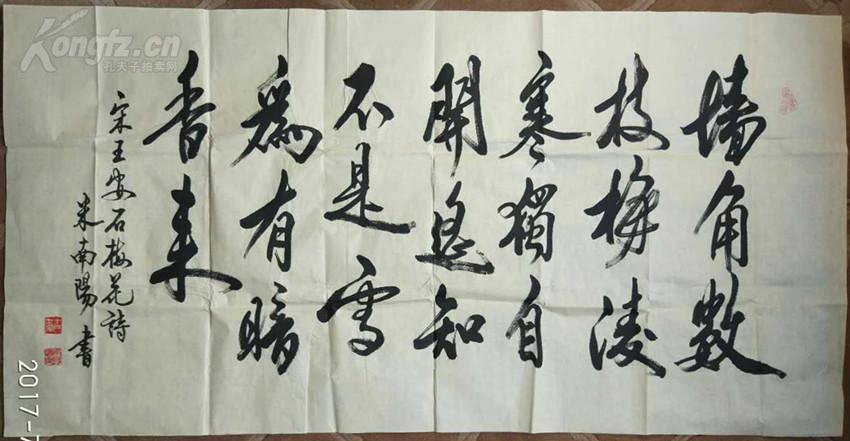 墙角数
枝梅凌
寒獨自
開遥知
不是雪
為有暗
香来
宋王安石梅花詩
米南陽書
Kongfz.cn
孔夫子拍卖网
2017-7